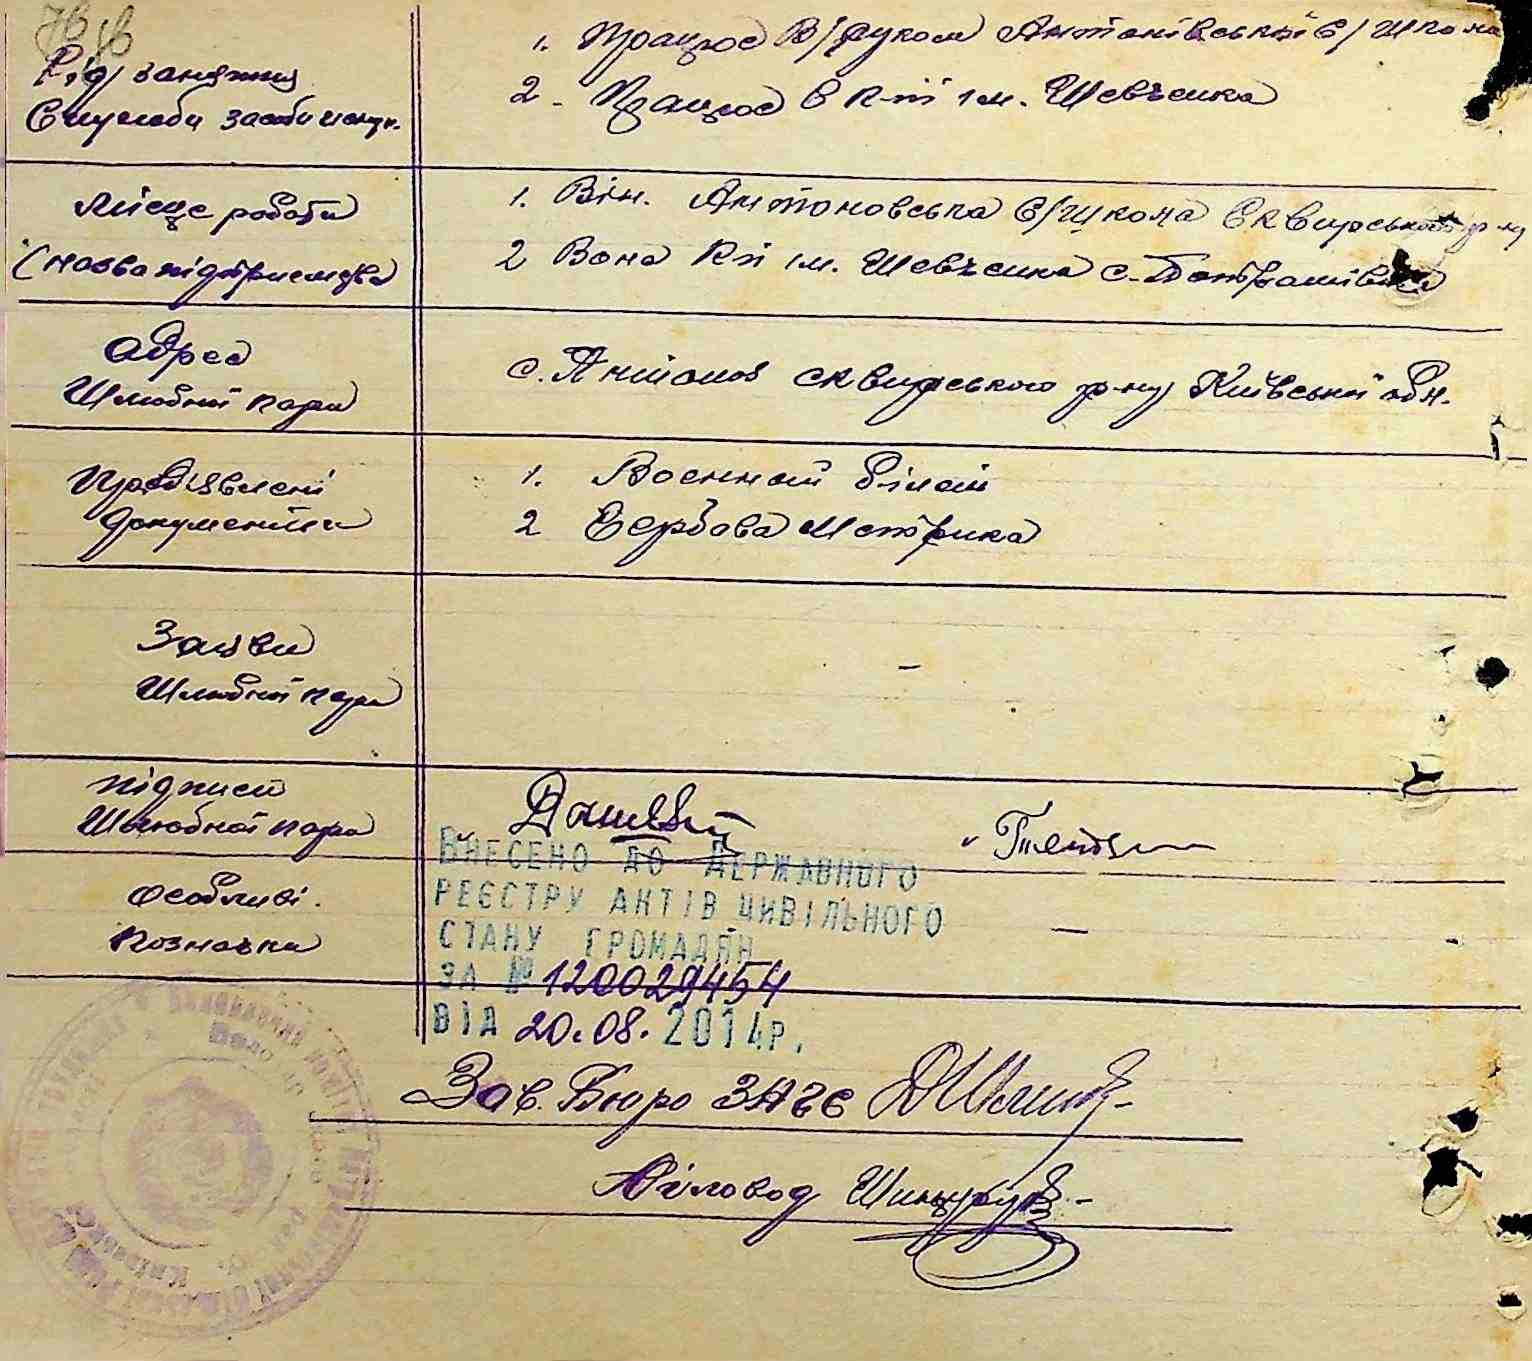 Рід заняття
Служби засоби існув.
1. Працює в/руком Антонівської с/школа
2 - Працює в к-пі ім. Шевченка
Місце роботи
(назва підприємства)
1. Він. Антоновська с/школа Сквирського р-ну
2 Вона к-пі ім. Шевченка с.
Адрес
Шлюбної пари
с. Антонов сквирського р-ну Київської обл.
Пред'явлені
документи
1. Воєнний білет
2 Гербова Метрика
Заяви
Шлюбної пари
-
Підписи
Шлюбної пари
Особливі
Позначки
-
ВНЕСЕНО ДО ДЕРЖАВНОГО
РЕЄСТРУ АКТІВ ЦИВІЛЬНОГО
СТАНУ ГРОМАДЯН
ЗА № 120029454
ВІД 20.08.2014р.
Зав. Бюро ЗАГС
Діловод